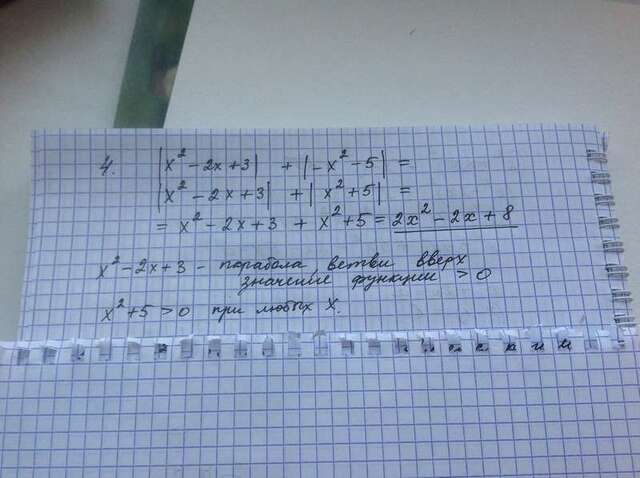 4. |x² - 2x + 3| + |-x² - 5| =
|x² - 2x + 3| + |x² + 5| =
= x² - 2x + 3 + x² + 5 = 2x² - 2x + 8
x² - 2x + 3 - парабола, ветви вверх
значение функции > 0
x² + 5 > 0 при любых x.